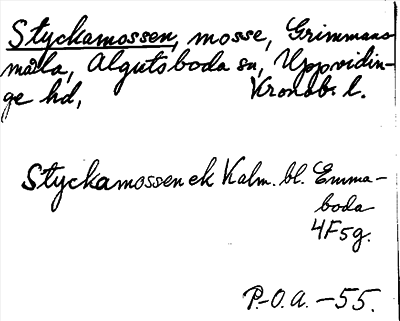 Styckamossen, mosse, Grimmans
måla, Algutsboda sn, Uppvidin-
ge hd, Kronob. l.
Styckamossen ek Kalm. bl. Emma-
boda
4F5g.
P.-O.A. -55.